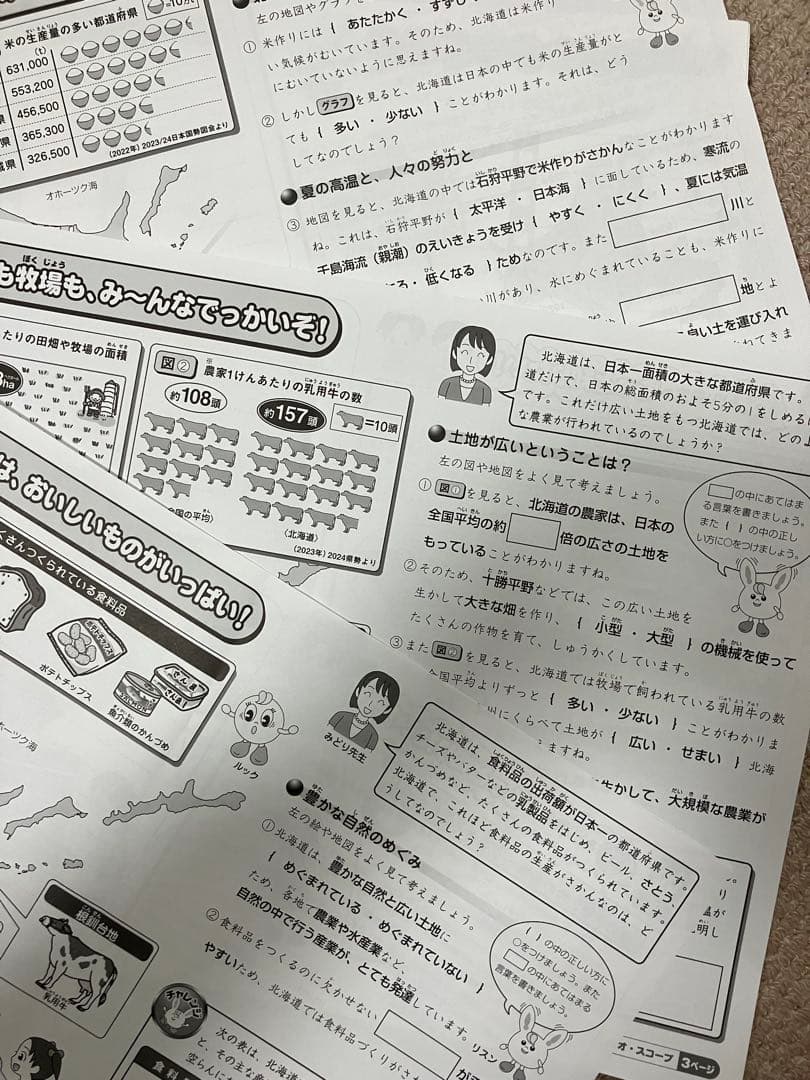 米の生産量の多い都道府県
(t)
631,000
553,200
456,500
365,300
326,500
(2022年) 2023/24日本国勢図会より
オホーツク海
左の地図やグラフを
① 米作りには { あたたかく ・ すずし
い気候がむいています。そのため、北海道は米作り
にむいていないように思えますね。
② しかし グラフ を見ると、北海道は日本の中でも米の生産量がと
ても { 多い ・ 少ない } ことがわかります。それは、どう
してなのでしょう？
夏の高温と、人々の努力と
③ 地図を見ると、北海道の中では石狩平野で米作りがさかんなことがわかります
ね。これは、石狩平野が { 太平洋 ・ 日本海 } に面しているため、寒流の
千島海流（親潮）のえいきょうを受け { やすく ・ にくく }、夏には気温
・ 低くなる } ためなのです。また 川と
川があり、水にめぐまれていることも、米作りに
地とよ
良い土を運び入れ
も牧場も、み〜んなでっかいぞ！
たりの田畑や牧場の面積
ha
図②
※農家1けんあたりの乳用牛の数
約108頭
約157頭
=10頭
全国の平均〉
〈北海道〉
(2023年) 2024県勢より
北海道は、日本一面積の大きな都道府県です。
道だけで、日本の総面積のおよそ5分の1をしめる
です。これだけ広い土地をもつ北海道では、どの
な農業が行われているのでしょうか？
土地が広いということは？
左の図や地図をよく見て考えましょう。
① 図① を見ると、北海道の農家は、日本の
全国平均の約 倍の広さの土地を
もっていることがわかりますね。
② そのため、十勝平野などでは、この広い土地を
生かして大きな畑を作り、 { 小型 ・ 大型 } の機械を使って
たくさんの作物を育て、しゅうかくしています。
③ また 図② を見ると、北海道では牧場で飼われている乳用牛の数
全国平均よりずっと { 多い ・ 少ない } ことがわかりま
州にくらべて土地が { 広い ・ せまい } 北海
生かして、大規模な農業が
の中にあてはま
る言葉を書きましょう。
また { } の中の正し
い方に○をつけましょう。
は、おいしいものがいっぱい！
くさんつくられている食料品
ポテトチップス
魚介類のかんづめ
ルック
オホーツク海
根釧台地
乳用牛
みどり先生
北海道は、食料品の出荷額が日本一の都道府県です。
チーズやバターなどの乳製品をはじめ、ビール、さとう、
かんづめなど、たくさんの食料品がつくられています。
北海道で、これほど食料品の生産がさかんなのは、ど
うしてなのでしょう？
豊かな自然のめぐみ
左の絵や地図をよく見て考えましょう。
① 北海道は、豊かな自然と広い土地に
{ めぐまれている ・ めぐまれていない }
ため、各地で農業や水産業など、
自然の中で行う産業が、とても発達しています。
② 食料品をつくるのに欠かせない が
やすいため、北海道では食料品づくりがさか
{ } の中の正しい方に
○をつけましょう。また
の中にあてはまる
言葉を書きましょう。
リスン
チャレンジ
次の表は、北海道
と、その主な
空らんに
食料
オ・スコープ 3ページ